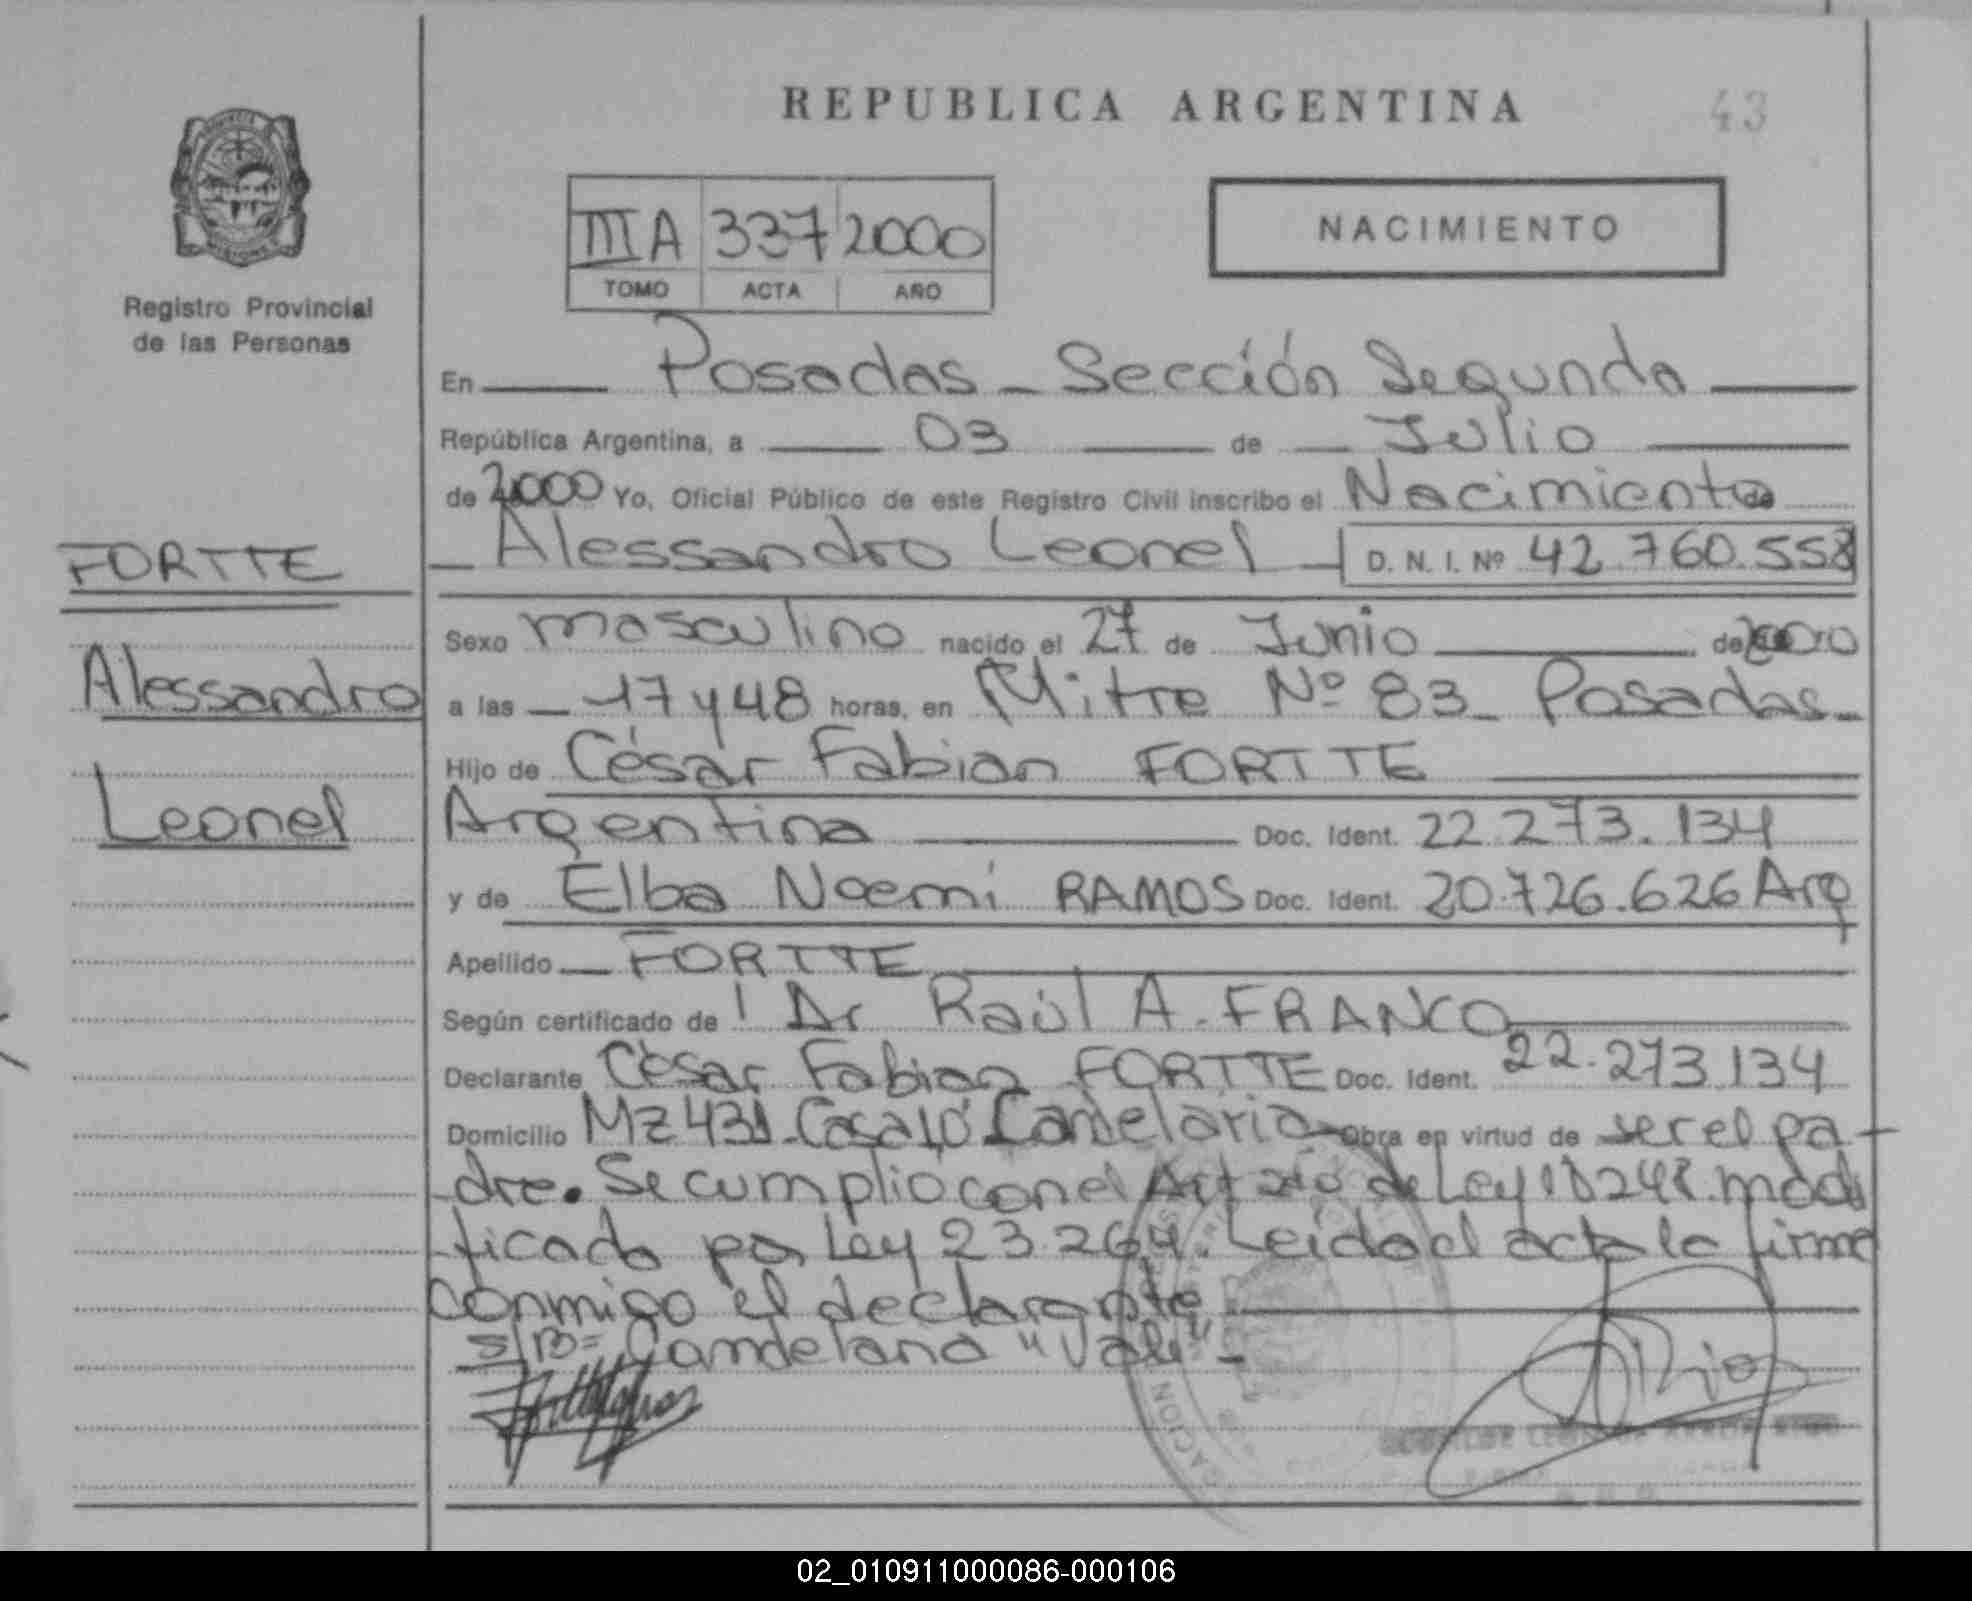 REPUBLICA ARGENTINA
43
Registro Provincial
de las Personas
IIIA 337 2000
TOMO ACTA AÑO
NACIMIENTO
En Posadas - Sección Segunda
República Argentina, a 03 de Julio
de 2000 Yo, Oficial Público de este Registro Civil inscribo el Nacimiento de
Alessandro Leonel D. N. I. Nº 42.760.558
FORTTE
Alessandro
Leonel
Sexo masculino nacido el 27 de Junio de 2000
a las 17 y 48 horas, en Mitre Nº 83 - Posadas -
Hijo de César Fabian FORTTE
Argentina Doc. Ident. 22.273.134
y de Elba Noemi RAMOS Doc. Ident. 20.726.626 Arg
Apellido FORTTE
Según certificado de Dr Raúl A. FRANCO
Declarante César Fabian FORTTE Doc. Ident. 22.273.134
Domicilio Mz 431 - Casa 10 Candelaria Obra en virtud de ser el pa-
dre. Se cumplio con el Art de Ley 18248 modi
ficado por Ley 23.264. Leida el acta la firma
conmigo el declarante
S/B= Candelaria "Vale" -
02_010911000086-000106